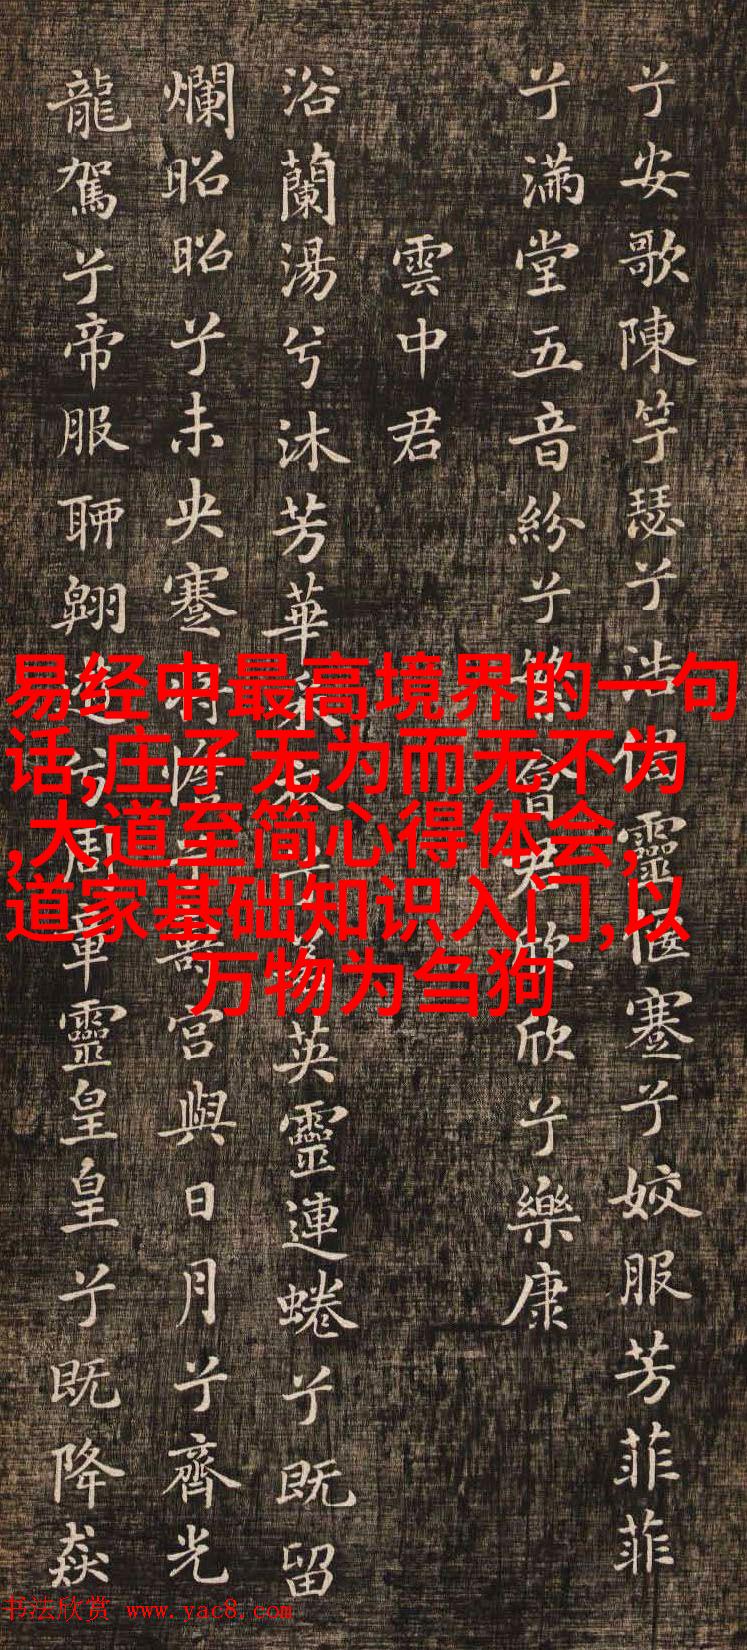 兮安歌陳竽瑟兮浩倡靈偃蹇兮姣服芳菲菲
兮滿堂五音紛兮繁會君欣欣兮樂康
雲中君
浴蘭湯兮沐芳華采衣兮若英靈連蜷兮既留
爛昭昭兮未央蹇將憺兮壽宮與日月兮齊光
龍駕兮帝服聊翱遊兮周章靈皇皇兮既降猋
易经中最高境界的一句
话,庄子无为而无不为
,大道至简心得体会,
道家基础知识入门,以
万物为刍狗
书法欣赏 www.yac8.com